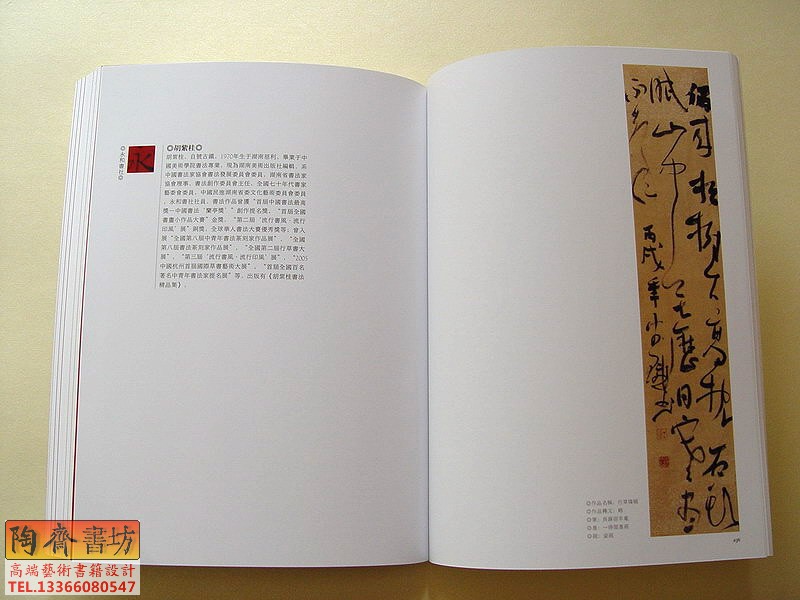 ◎永和書社◎
永
◎胡紫桂◎
胡紫桂,自號古鐵,1970年生于湖南慈利,畢業于中
國美術學院書法專業。現為湖南美術出版社編輯,系
中國書法家協會書法發展委員會委員,湖南省書法家
協會理事、書法創作委員會主任,全國七十年代書家
藝委會委員,中國民進湖南省委文化藝術委員會委員,
永和書社社員。書法作品曾獲“首屆中國書法最高
獎—中國書法‘蘭亭獎’”創作提名獎,“首屆全國
書畫小作品大賽”金獎,“第二屆‘流行書風·流行
印風’展”銅獎,全球華人書法大賽優秀獎等;曾入
展“全國第八屆中青年書法篆刻家作品展”,“全國
第八屆書法篆刻家作品展”,“全國第二屆行草書大
展”,“第三屆‘流行書風·流行印風’展”,“2005
中國杭州首屆國際草書藝術大展”,“首屆全國百名
著名中青年書法家提名展”等,出版有《胡紫桂書法
精品集》。
偶來松樹下高枕石頭
眠山中無曆日寒盡
不知年 丙戌年
◎作品名稱:行草條幅
◎作品釋文:
陶齋書坊
高端藝術書籍設計
TEL.13366080547